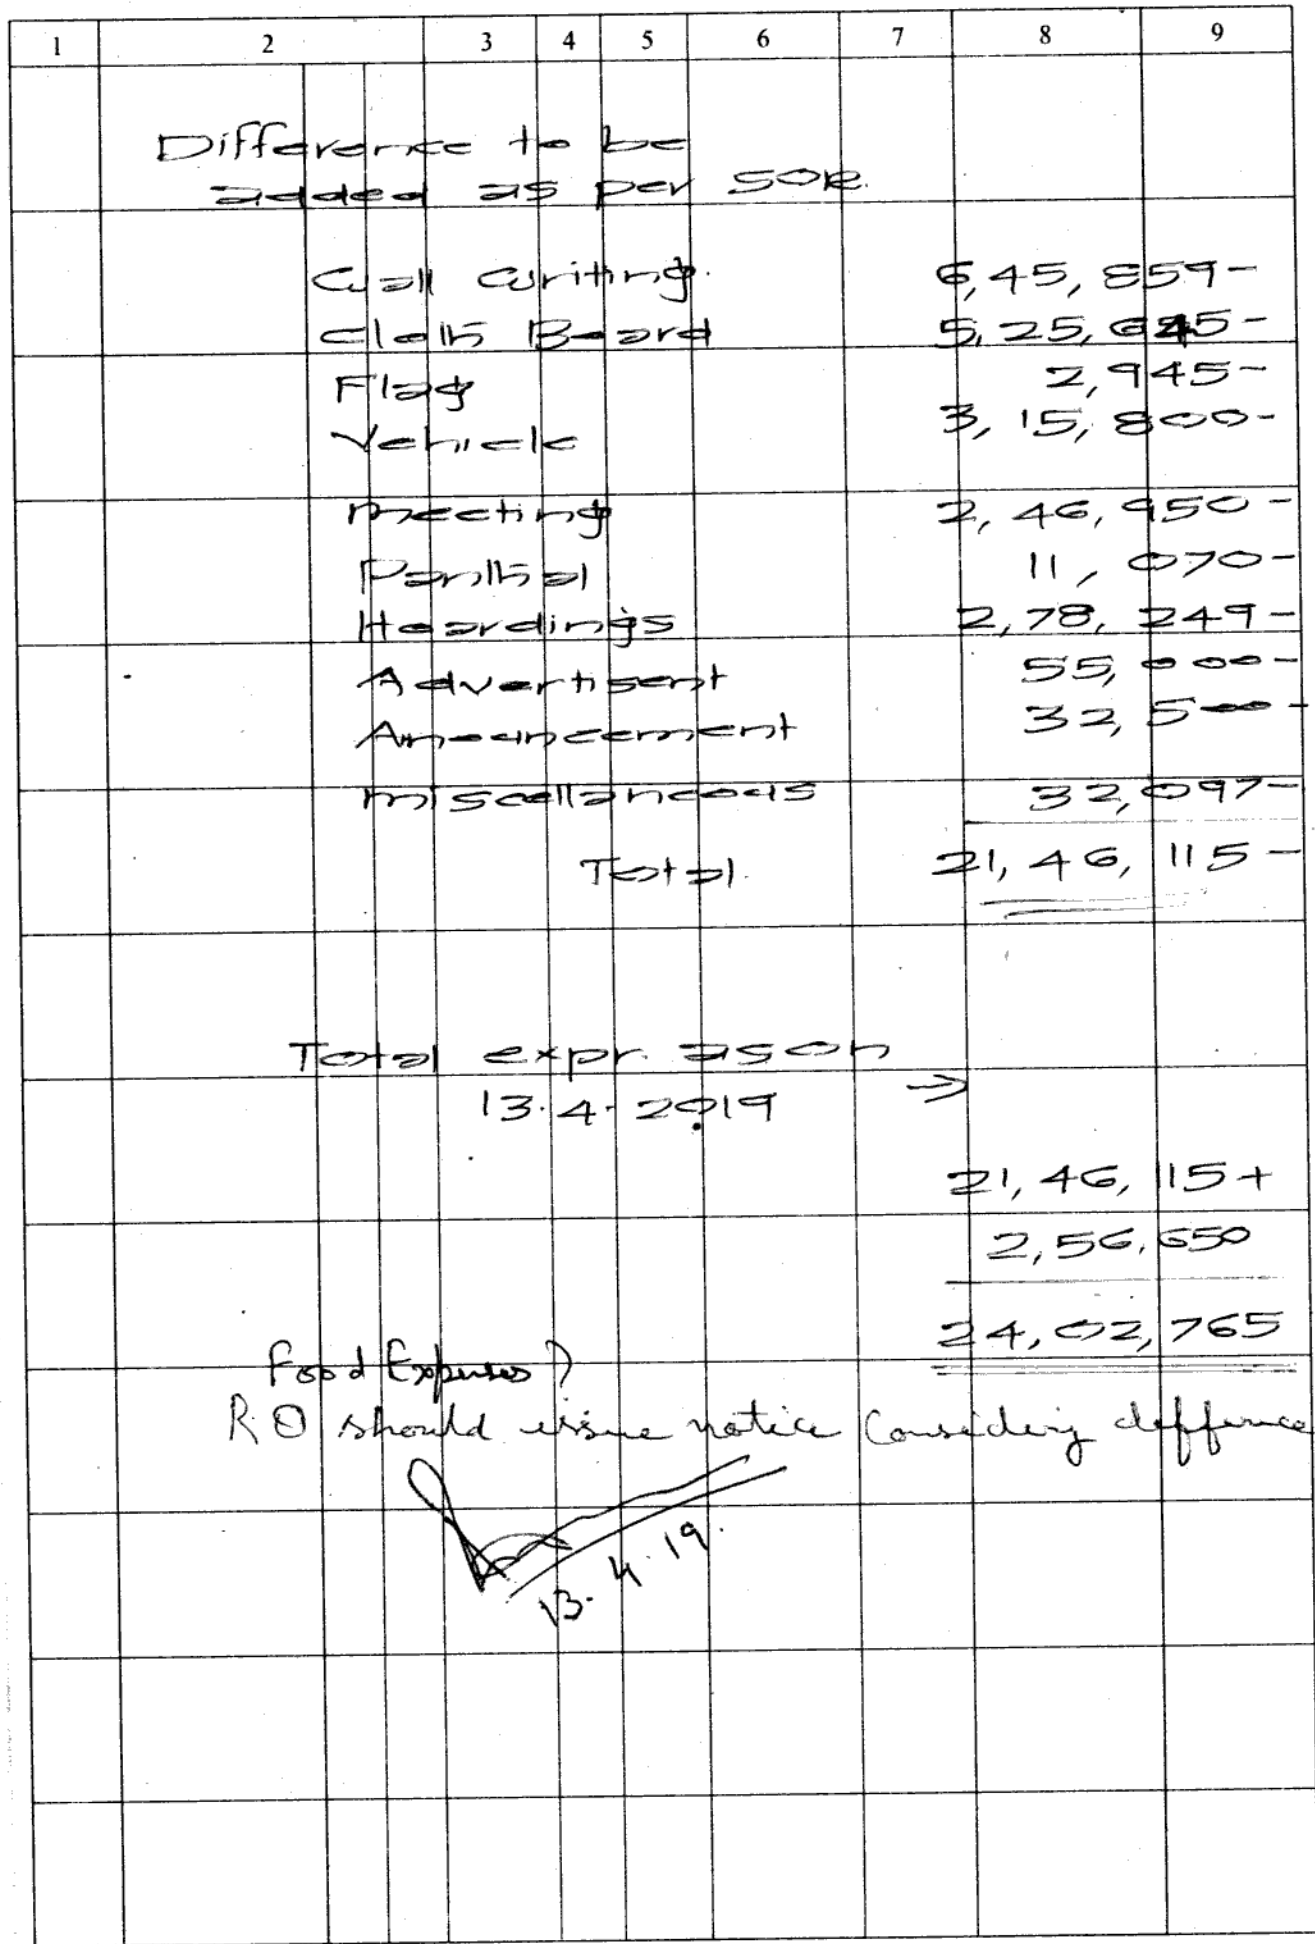 1 2 3 4 5 6 7 8 9
Difference to be
added as per SOR
Wall writing. 6,45,859-
Cloth Board 5,25,645-
Flag 2,945-
Vehicle 3,15,800-
Meeting 2,46,950-
Panthal 11,070-
Hoardings 2,78,249-
Advertisent 55,000-
Anouncement 32,500-
Miscellaneous 32,097-
Total. 21,46,115-
Total expr. as on
13.4.2019 →
21,46,115+
2,56,650
24,02,765
Food Expenses ?
R.O should issue notice Considing defference
13.4.19.